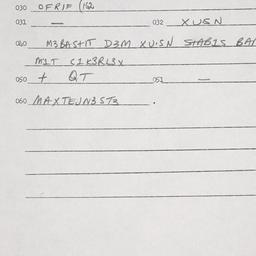 030 OFRIF (162
031 — 032 XUSN
040 M3BASHT D3M XU.SN STAB1S BAI
M1T C1K3RL3X
050 + QT 051 —
060 MAXTEJN3ST3 .